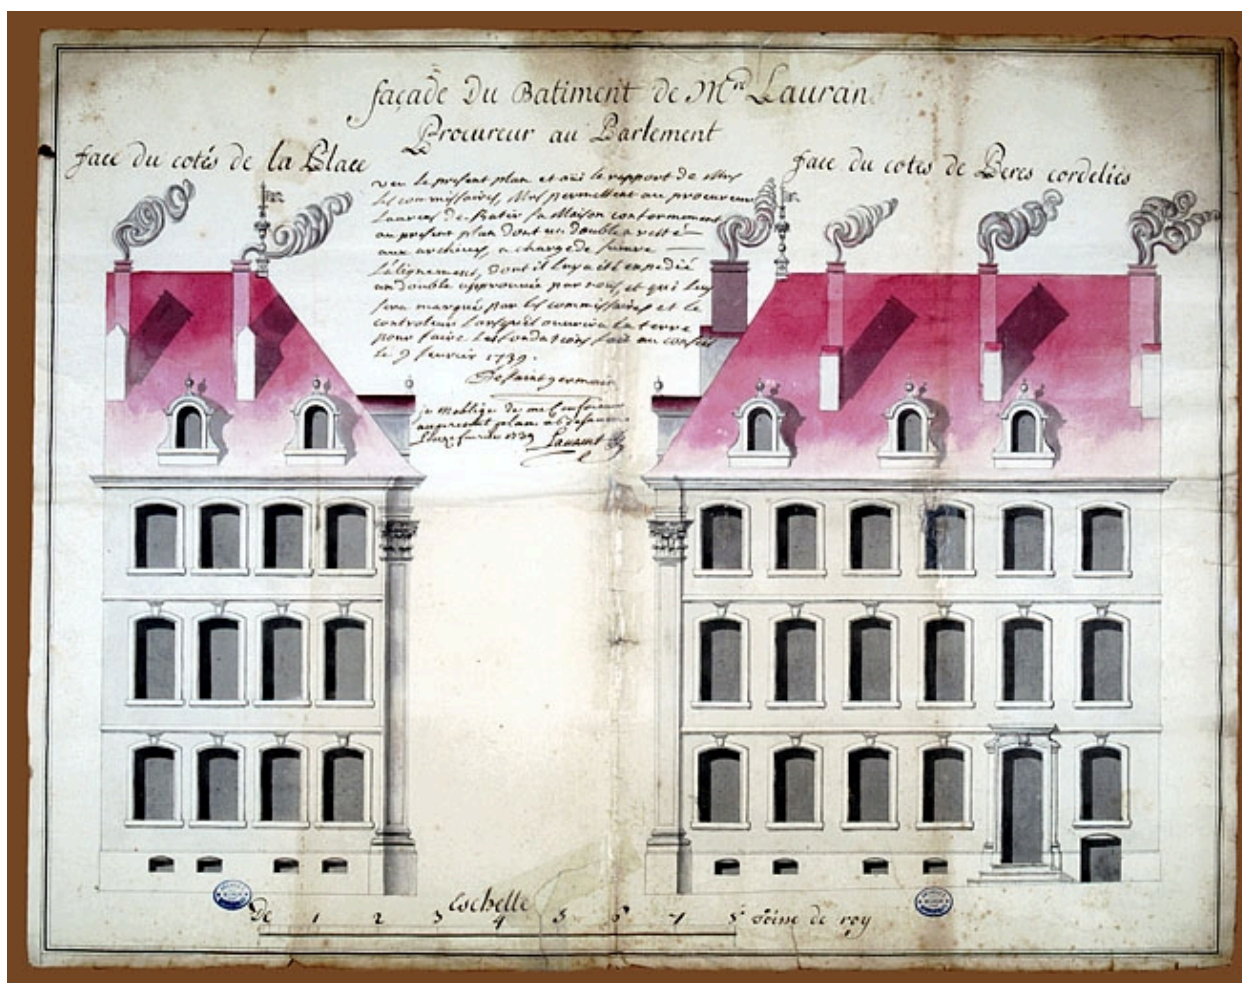 façade Du Batiment de M^re Lauran
Procureur au Parlement
face du cotés de la Place
face du cotes de Peres cordeliés
veu le present plan et oüi le rapport de Mes
les commissaires, Mes permettent au procureur
Laurens de Batir sa Maison conformement
au present plan dont un double a resté
aux archives, a charge de suivre
l'alignement, dont il luy a été expedié
un double approuvée par nous, et qui luy
sera marqué par les commissaires et le
controleur lorsqu'il ouvrira la terre
pour faire les fondations fait au conseil
le 9 fevrier 1739.
DeSaintgermain
je m'oblige de me Conformer
au present plan a
fevrier 1739 Laurent
Eschelle
De 1 2 3 4 5 6 7 8 Toise de roy